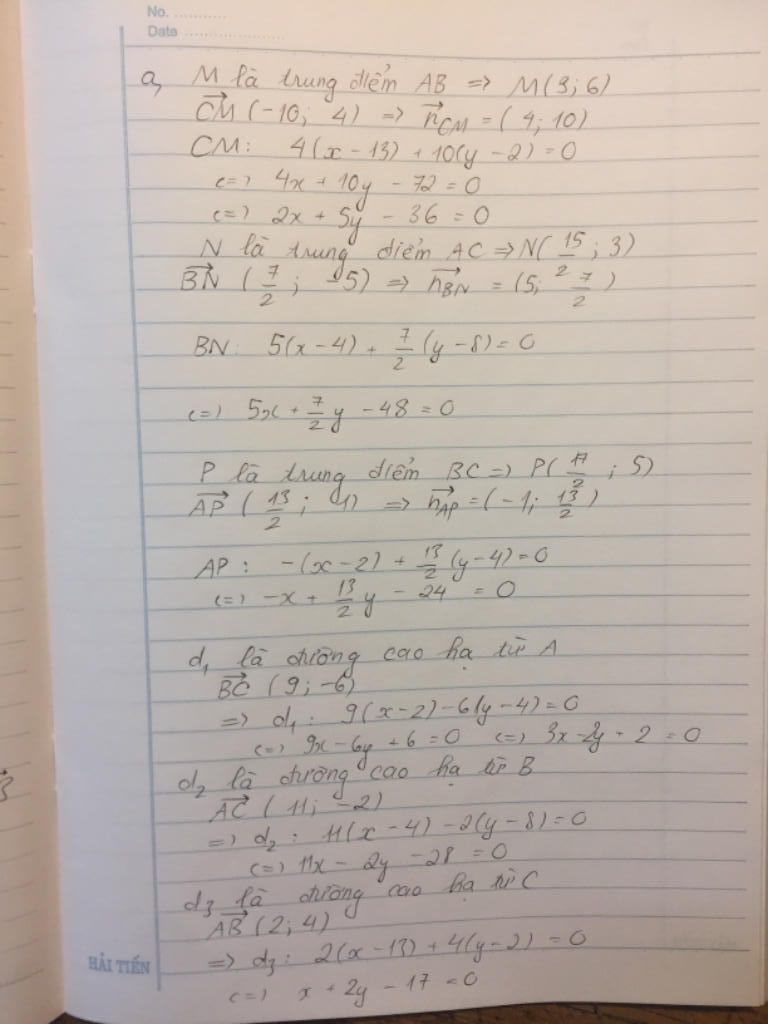 No. ..........
Date ..................
a, M là trung điểm AB => M(3; 6)
CM→ (-10; 4) => n→CM = (4; 10)
CM: 4(x - 13) + 10(y - 2) = 0
<=> 4x + 10y - 72 = 0
<=> 2x + 5y - 36 = 0
N là trung điểm AC => N(15/2; 3)
BN→ (7/2; -5) => n→BN = (5; 7/2)
BN: 5(x - 4) + 7/2 (y - 8) = 0
<=> 5x + 7/2 y - 48 = 0
P là trung điểm BC => P(17/2; 5)
AP→ (13/2; 1) => n→AP = (-1; 13/2)
AP: -(x - 2) + 13/2 (y - 4) = 0
<=> -x + 13/2 y - 24 = 0
d₁ là đường cao hạ từ A
BC→ (9; -6)
=> d₁: 9(x - 2) - 6(y - 4) = 0
<=> 9x - 6y + 6 = 0 <=> 3x - 2y + 2 = 0
d₂ là đường cao hạ từ B
AC→ (11; -2)
=> d₂: 11(x - 4) - 2(y - 8) = 0
<=> 11x - 2y - 28 = 0
d₃ là đường cao hạ từ C
AB→ (2; 4)
=> d₃: 2(x - 13) + 4(y - 2) = 0
<=> x + 2y - 17 = 0
HẢI TIẾN